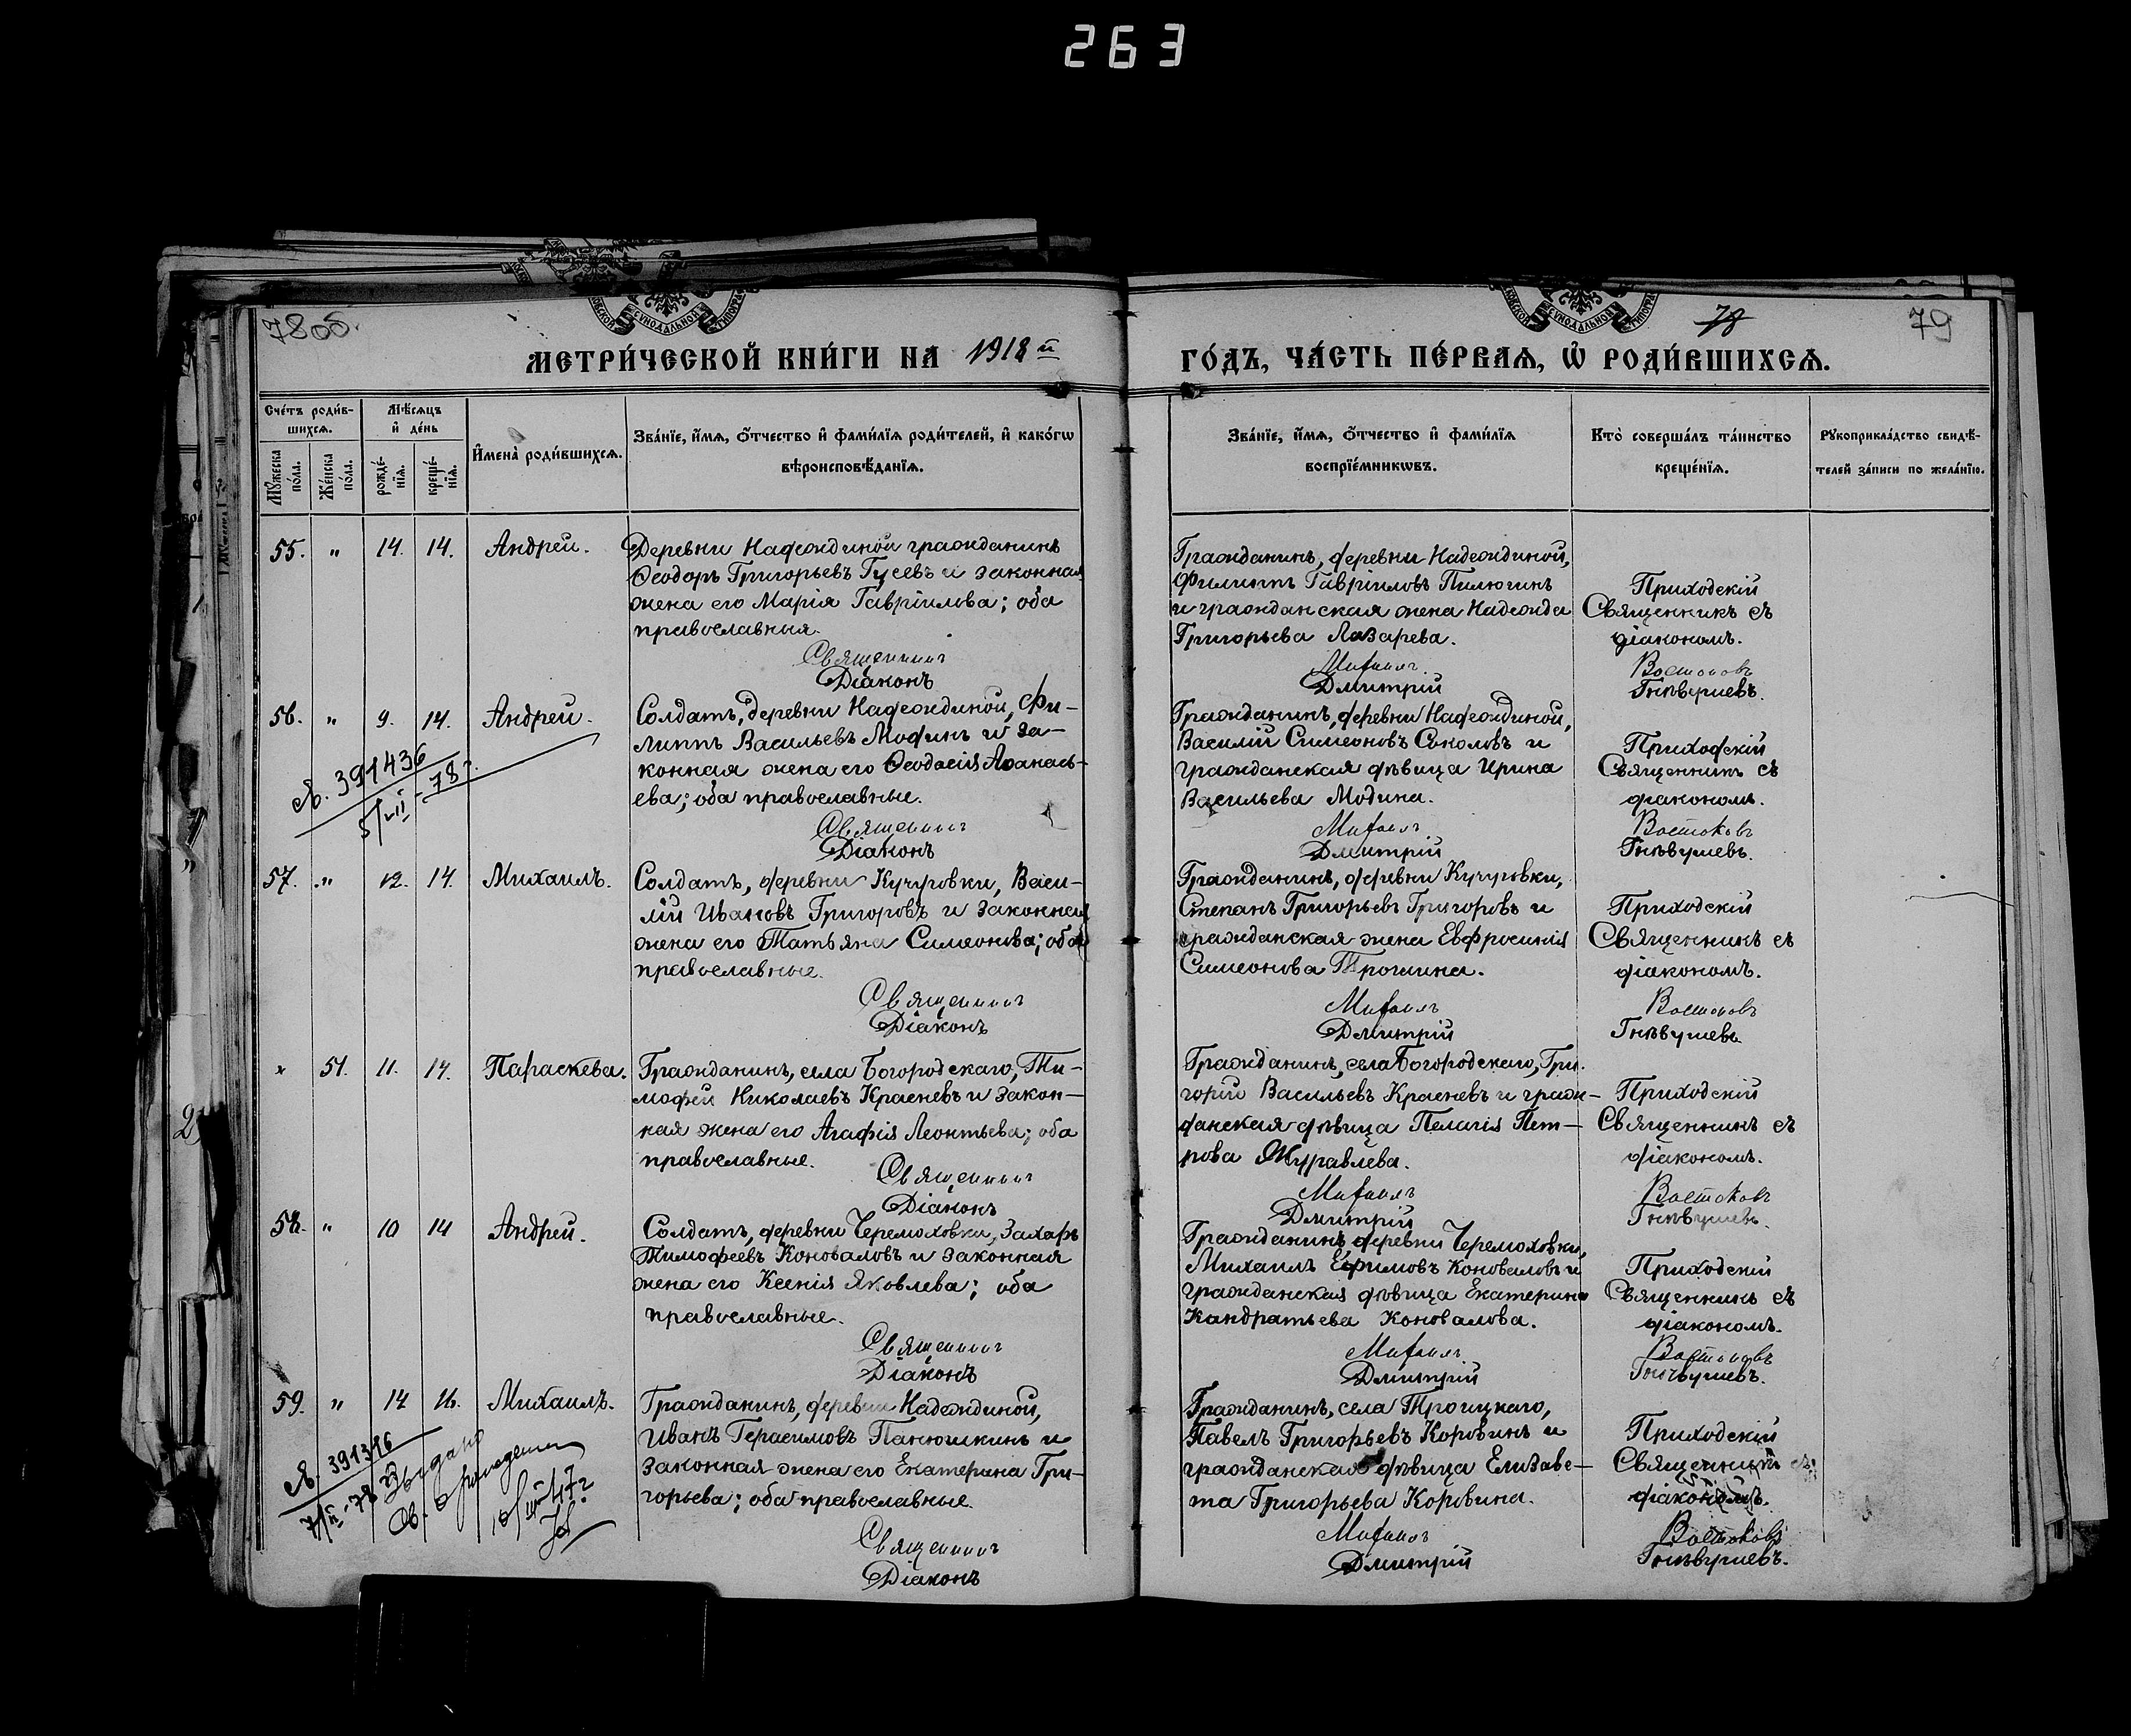 263
78об.
78
79
МЕТРИ́ЧЕСКОЙ КНИ́ГИ НА 1918 й
ГО́ДЪ, ЧА́СТЬ ПЕ́РВАѦ, Ѽ РОДИ́ВШИХСѦ.
Сче́тъ роди́в-
шихсѧ.
Мѣ́сѧцъ
и҆ де́нь
Мꙋ́жеска
по́ла.
Же́нска
по́ла.
рожде́-
нїѧ.
креще́-
нїѧ.
И҆мена̀ роди́вшихсѧ.
Зва́нїе, и҆́мѧ, ѻ҆́тчество и҆ фами́лїѧ роди́телей, и҆ како́гѡ
вѣроисповѣ́данїѧ.
Зва́нїе, и҆́мѧ, ѻ҆́тчество и҆ фами́лїѧ
воспрїе́мникѡвъ.
Кто̀ соверша́лъ та́инство
креще́нїѧ.
Рꙋкоприкла́дство свидѣ́-
телей за́писи по жела́нїю.
55. " 14. 14. Андрей.
Деревни Надеждиной гражданинъ
Ѳеодоръ Григорьевъ Гусевъ и законная
жена его Марія Гавріилова; оба
православныя.
Священникъ
Діаконъ
Гражданинъ, деревни Надеждиной,
Филиппъ Гавріиловъ Пилюгинъ
и гражданская жена Надежда
Григорьева Лазарева.
Михаилъ
Дмитрій
Приходскій
Священникъ съ
діакономъ.
Востоковъ
Гнѣвушевъ.
56. " 9. 14. Андрей.
Солдатъ, деревни Надеждиной, Фи-
липпъ Васильевъ Модинъ и за-
конная жена его Ѳеодосія Аѳанась-
ева; оба православные.
Священникъ
Діаконъ
Я. 391436
5/VII-78г.
Гражданинъ, деревни Надеждиной,
Василій Симеоновъ Соколовъ и
гражданская дѣвица Ирина
Васильева Модина.
Михаилъ
Дмитрій
Приходскій
Священникъ съ
діакономъ.
Востоковъ
Гнѣвушевъ.
57. " 12. 14. Михаилъ.
Солдатъ, деревни Кучуровки, Васи-
лій Ивановъ Григоровъ и законная
жена его Татьяна Симеонова; оба
православные.
Священникъ
Діаконъ
Гражданинъ, деревни Кучуровки,
Степанъ Григорьевъ Григоровъ и
гражданская жена Евфросинія
Симеонова Трошина.
Михаилъ
Дмитрій
Приходскій
Священникъ съ
діакономъ.
Востоковъ
Гнѣвушевъ
" 51. 11. 14. Параскева.
Гражданинъ, села Богородскаго, Ти-
мофей Николаевъ Красневъ и закон-
ная жена его Агафія Леонтьева; оба
православные.
Священникъ
Діаконъ
Гражданинъ, села Богородскаго, Гри-
горій Васильевъ Красневъ и граж-
данская дѣвица Пелагія Пет-
рова Журавлева.
Михаилъ
Дмитрій
Приходскій
Священникъ съ
діакономъ.
Востоковъ
Гнѣвушевъ.
58. " 10 14 Андрей.
Солдатъ, деревни Черемоховки, Захаръ
Тимофеевъ Коноваловъ и законная
жена его Ксенія Яковлева; оба
православные.
Священникъ
Діаконъ
Гражданинъ деревни Черемоховки,
Михаилъ Ефимовъ Коноваловъ и
гражданская дѣвица Екатерина
Кандратьева Коновалова.
Михаилъ
Дмитрій
Приходскій
Священникъ съ
діакономъ.
Востоковъ
Гнѣвушевъ.
59. " 14 16. Михаилъ.
Гражданинъ, деревни Надеждиной,
Иванъ Герасимовъ Панюшкинъ и
законная жена его Екатерина Гри-
горьева; оба православные.
Священникъ
Діаконъ
Я. 391316
7/II-78 Выдано
св. о рождении
Гражданинъ, села Троицкаго,
Павелъ Григорьевъ Коровинъ и
гражданская дѣвица Елизаве-
та Григорьева Коровина.
Михаилъ
Дмитрій
Приходскій
Священникъ съ
діакономъ.
Востоковъ
Гнѣвушевъ.